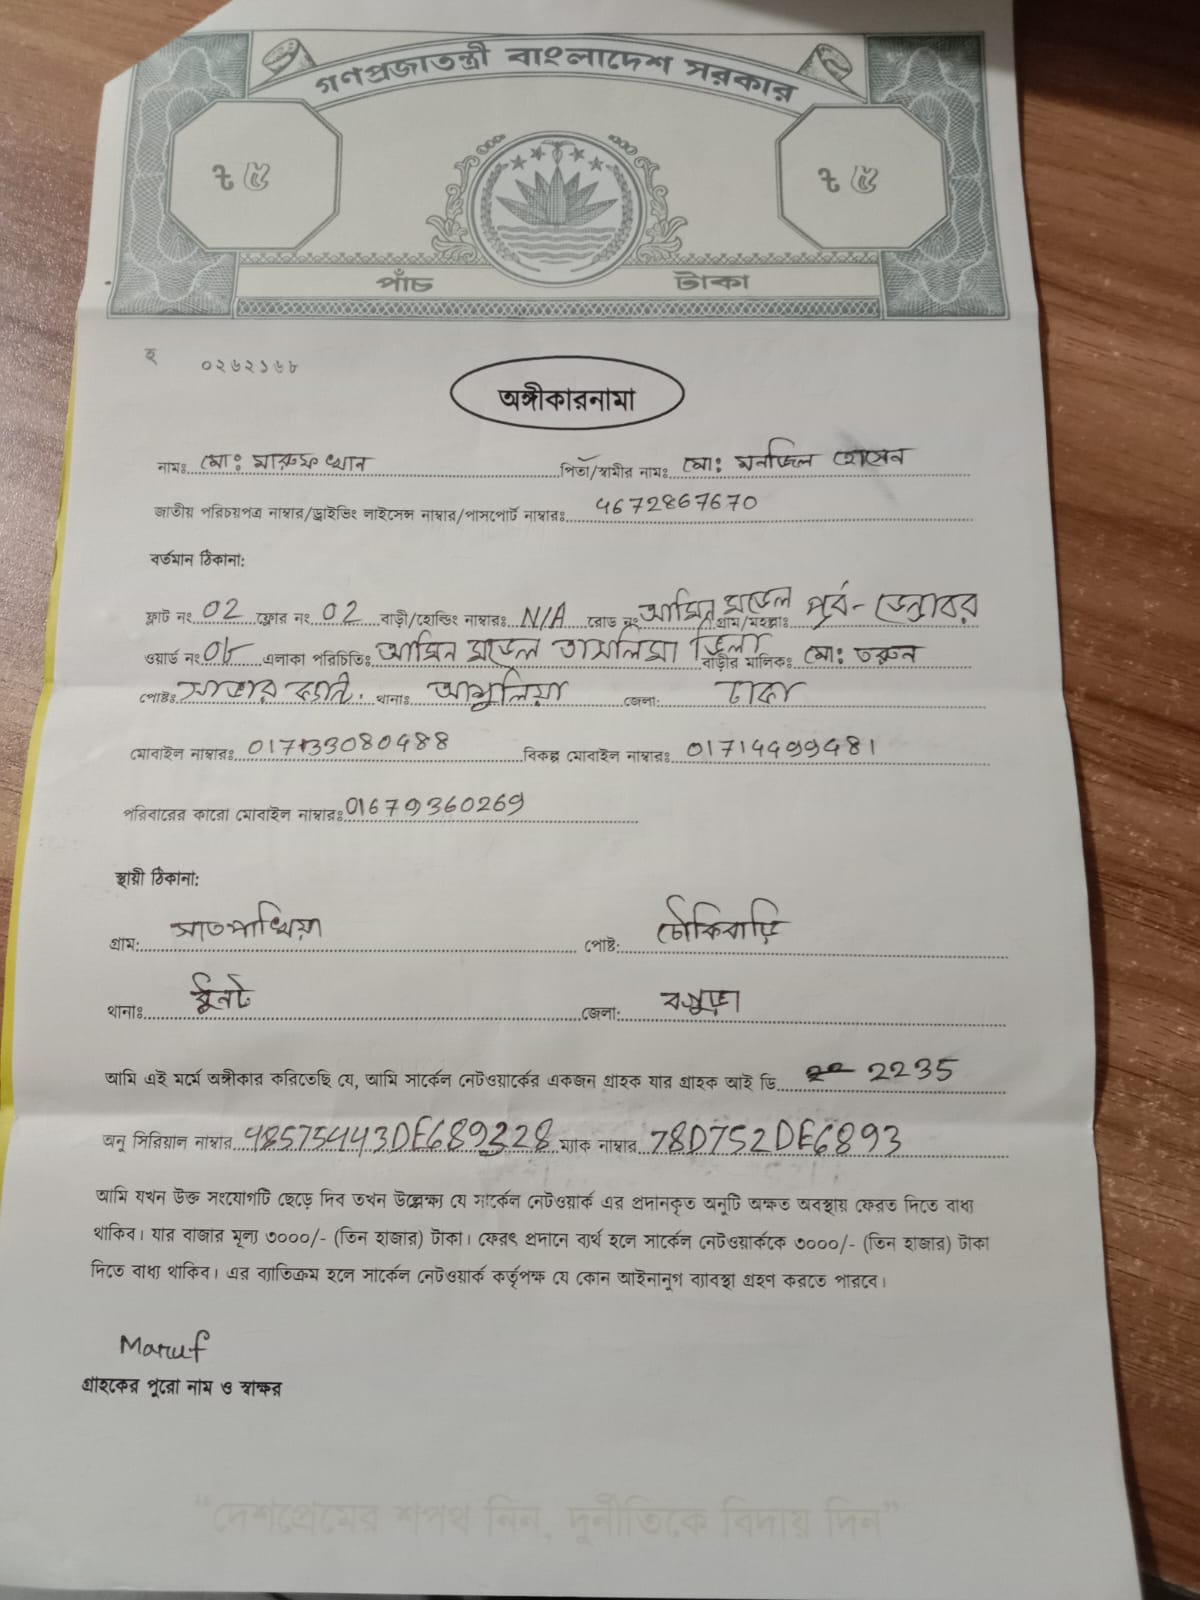 গণপ্রজাতন্ত্রী বাংলাদেশ সরকার
৳ ৫ ৳ ৫
পাঁচ টাকা
হ ০২৬২১৬৮
অঙ্গীকারনামা
নামঃ মো: মারুফ খান পিতা/স্বামীর নামঃ মো: মনজিল হোসেন
জাতীয় পরিচয়পত্র নাম্বার/ড্রাইভিং লাইসেন্স নাম্বার/পাসপোর্ট নাম্বারঃ 4672867670
বর্তমান ঠিকানা:
ফ্লাট নং 02 ফ্লোর নং 02 বাড়ী/হোল্ডিং নাম্বারঃ N/A রোড নং আমিন মডেল গ্রাম/মহল্লাঃ পূর্ব- ডেন্ডাবর
ওয়ার্ড নং 0৮ এলাকা পরিচিতিঃ আমিন মডেল তাসলিমা ভিলা বাড়ীর মালিকঃ মো: তরুন
পোষ্টঃ সাভার ক্যান্ট. থানাঃ আশুলিয়া জেলা: ঢাকা
মোবাইল নাম্বারঃ 01733080488 বিকল্প মোবাইল নাম্বারঃ 01714499481
পরিবারের কারো মোবাইল নাম্বারঃ 01679360269
স্থায়ী ঠিকানা:
গ্রাম: সাতপাখিয়া পোষ্ট: চৌকিবাড়ি
থানাঃ ধুনট জেলা: বগুড়া
আমি এই মর্মে অঙ্গীকার করিতেছি যে, আমি সার্কেল নেটওয়ার্কের একজন গ্রাহক যার গ্রাহক আই ডি 2235
অনু সিরিয়াল নাম্বার 48575443DE689328 ম্যাক নাম্বার 78D752DE6893
আমি যখন উক্ত সংযোগটি ছেড়ে দিব তখন উল্লেক্ষ্য যে সার্কেল নেটওয়ার্ক এর প্রদানকৃত অনুটি অক্ষত অবস্থায় ফেরত দিতে বাধ্য
থাকিব। যার বাজার মূল্য ৩০০০/- (তিন হাজার) টাকা। ফেরৎ প্রদানে ব্যর্থ হলে সার্কেল নেটওয়ার্ককে ৩০০০/- (তিন হাজার) টাকা
দিতে বাধ্য থাকিব। এর ব্যাতিক্রম হলে সার্কেল নেটওয়ার্ক কর্তৃপক্ষ যে কোন আইনানুগ ব্যাবস্থা গ্রহণ করতে পারবে।
Maruf
গ্রাহকের পুরো নাম ও স্বাক্ষর
“দেশপ্রেমের শপথ নিন, দুর্নীতিকে বিদায় দিন”